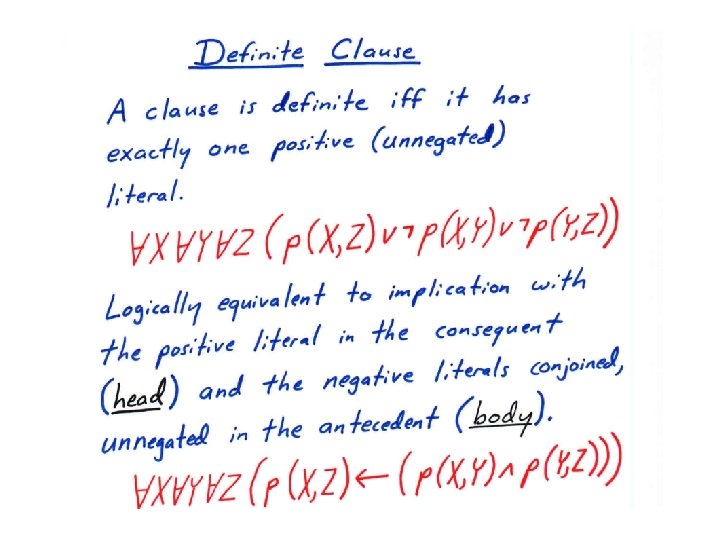 Definite Clause
A clause is definite iff it has
exactly one positive (unnegated)
literal.
∀X∀Y∀Z (p(X,Z) ∨ ¬p(X,Y) ∨ ¬p(Y,Z))
Logically equivalent to implication with
the positive literal in the consequent
(head) and the negative literals conjoined,
unnegated in the antecedent (body).
∀X∀Y∀Z (p(X,Z) ← (p(X,Y) ∧ p(Y,Z)))